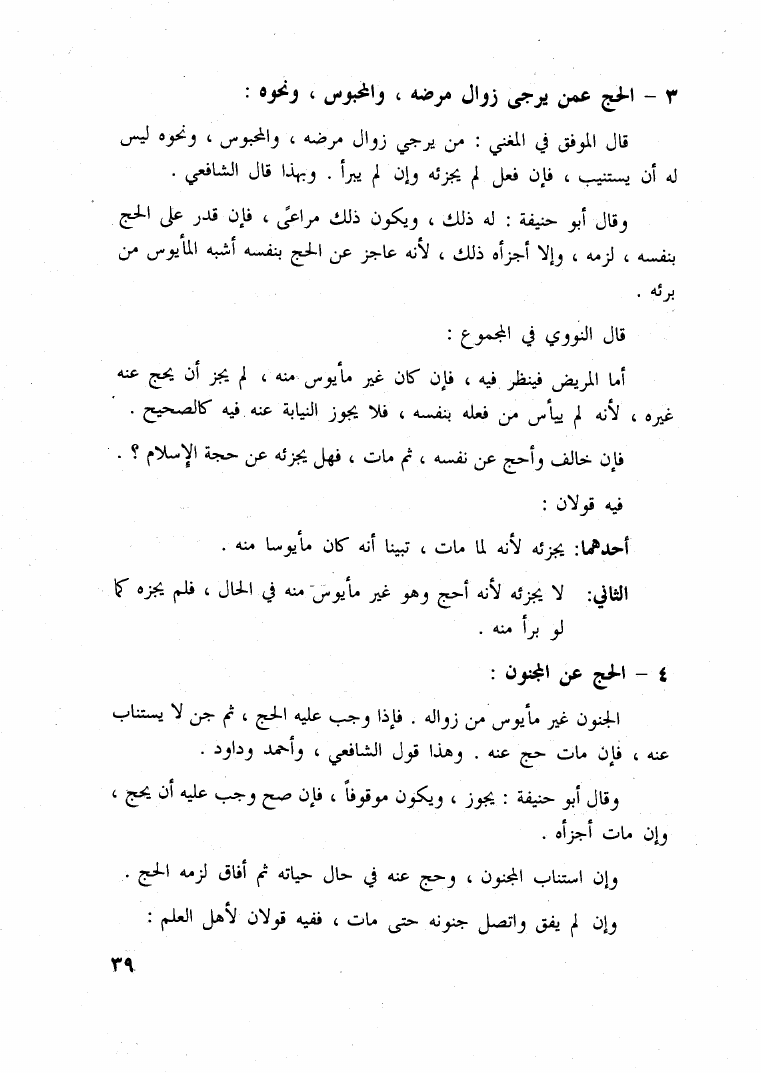 ٣ - الحج عمن يرجى زوال مرضه ، والمحبوس ، ونحوه :
قال الموفق في المغني : من يرجي زوال مرضه ، والمحبوس ، ونحوه ليس
له أن يستنيب ، فإن فعل لم يجزئه وإن لم يبرأ . وبهذا قال الشافعي .
وقال أبو حنيفة : له ذلك ، ويكون ذلك مراعىً ، فإن قدر على الحج
بنفسه ، لزمه ، وإلا أجزأه ذلك ، لأنه عاجز عن الحج بنفسه أشبه المأيوس من
برئه .
قال النووي في المجموع :
أما المريض فينظر فيه ، فإن كان غير مأيوس منه ، لم يجز أن يحج عنه
غيره ، لأنه لم ييأس من فعله بنفسه ، فلا يجوز النيابة عنه فيه كالصحيح .
فإن خالف وأحج عن نفسه ، ثم مات ، فهل يجزئه عن حجة الإسلام ؟ .
فيه قولان :
أحدهما: يجزئه لأنه لما مات ، تبينا أنه كان مأيوسا منه .
الثاني: لا يجزئه لأنه أحج وهو غير مأيوس منه في الحال ، فلم يجزه كما
لو برأ منه .
٤ - الحج عن المجنون :
الجنون غير مأيوس من زواله . فإذا وجب عليه الحج ، ثم جن لا يستناب
عنه ، فإن مات حج عنه . وهذا قول الشافعي ، وأحمد وداود .
وقال أبو حنيفة : يجوز ، ويكون موقوفاً ، فإن صح وجب عليه أن يحج ،
وإن مات أجزأه .
وإن استناب المجنون ، وحج عنه في حال حياته ثم أفاق لزمه الحج .
وإن لم يفق واتصل جنونه حتى مات ، ففيه قولان لأهل العلم :
٣٩